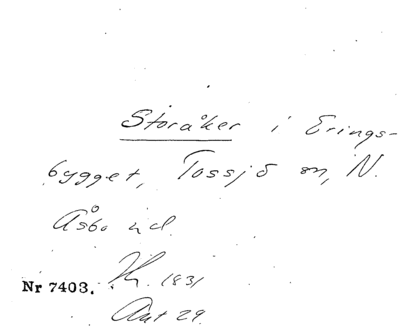 Storåker i Erings-
bygget, Tossjö sn, N.
Åsbo hd.
Nr 7403. 1831
Akt 29.